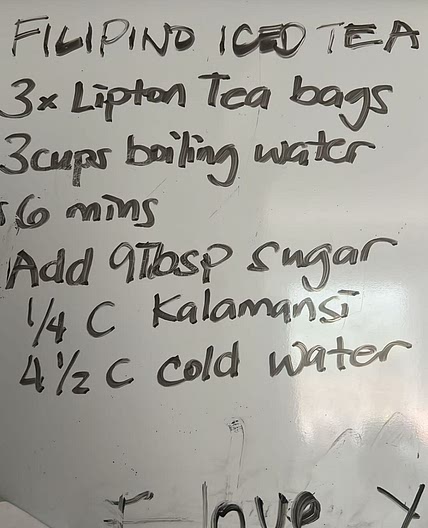 FILIPINO ICED TEA
3x Lipton Tea bags
3 cups boiling water
6 mins
Add 9Tbsp sugar
1/4 C Kalamansi
4 1/2 C cold water
I love Y